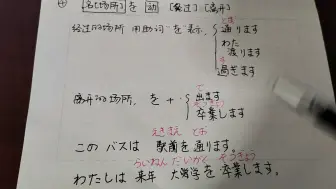 ④ [名(场所)] を 动 [经过] [离开]
经过的场所 用助词"を"表示。
とお
通ります
わた
渡ります
す
過ぎます
离开的场所, を +
で
出ます
卒業します
えきまえ とお
このバスは 駅前を通ります。
らいねん だいがく そつぎょう
わたしは 来年 大学を卒業します。